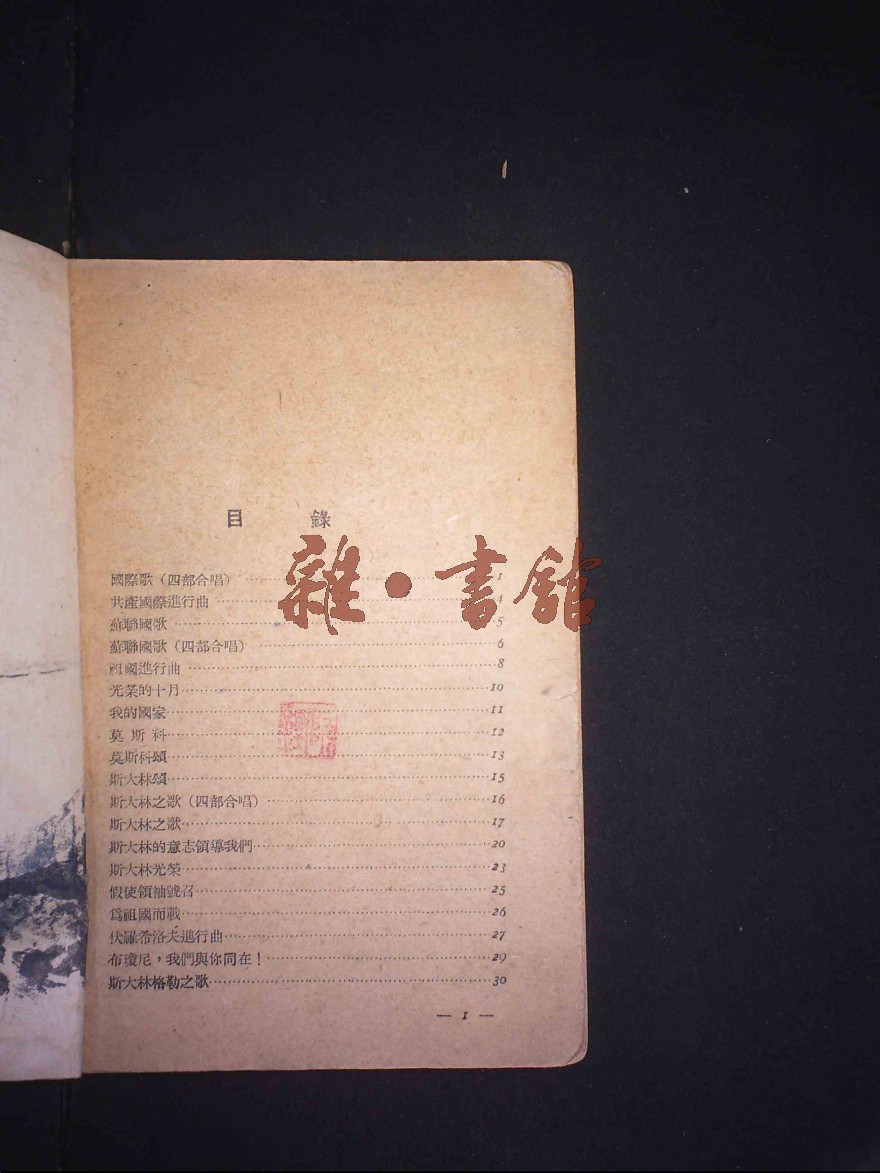 目 錄
國際歌（四部合唱）……1
共產國際進行曲……4
蘇聯國歌……5
蘇聯國歌（四部合唱）……6
祖國進行曲……8
光榮的十月……10
我的國家……11
莫斯科……12
莫斯科頌……13
斯大林頌……15
斯大林之歌（四部合唱）……16
斯大林之歌……17
斯大林的意志領導我們……20
斯大林光榮……23
假使領袖號召……25
爲祖國而戰……26
伏羅希洛夫進行曲……27
布瓊尼，我們與你同在！……29
斯大林格勒之歌……30
— 1 —
雜·書館